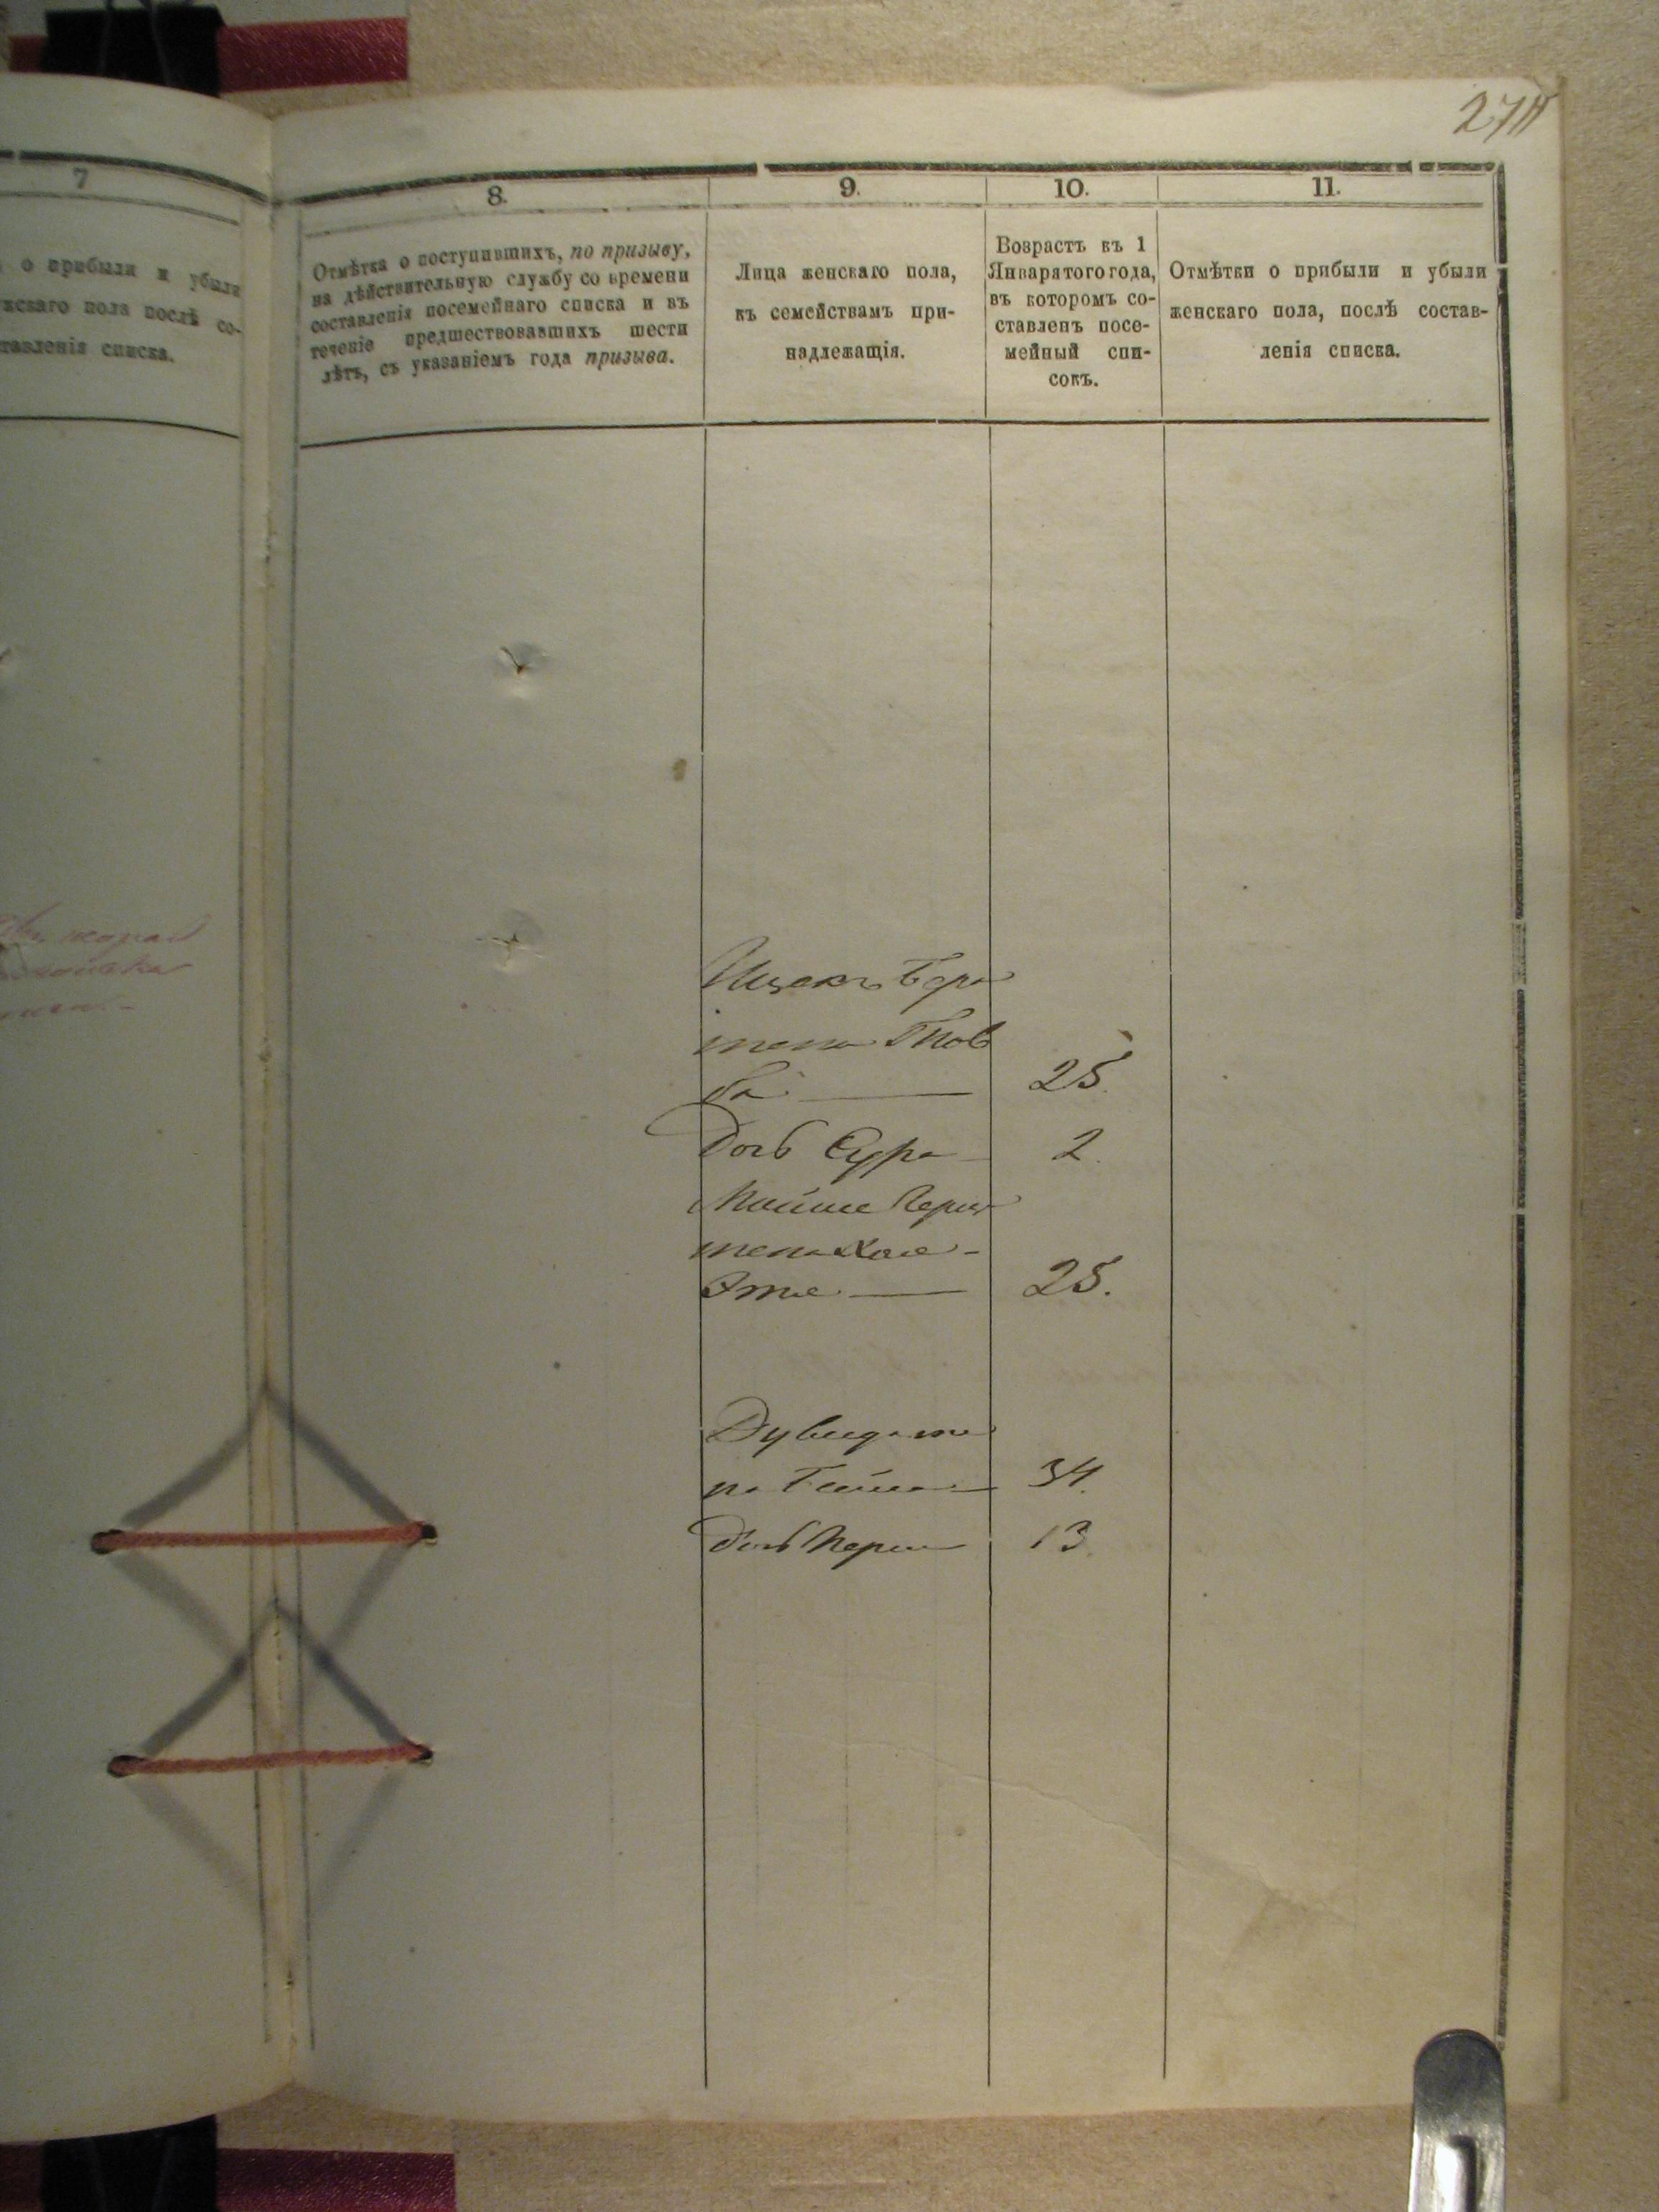 274
7
8.
9.
10.
11.
о прибыли и убыли
жскаго пола послѣ со-
тавленія списка.
Отмѣтка о поступившихъ, по призыву,
на дѣйствительную службу со времени
составленія посемейнаго списка и въ
теченіе предшествовавшихъ шести
лѣтъ, съ указаніемъ года призыва.
Лица женскаго пола,
къ семействамъ при-
надлежащія.
Возрастъ къ 1
Января того года,
въ которомъ со-
ставленъ посе-
мейный спи-
сокъ.
Отмѣтки о прибыли и убыли
женскаго пола, послѣ состав-
ленія списка.
Ицекъ Бера
жена Тов
ба 25.
Дочь Сура 2.
Мойше
жена Хае
Этие 25.
Дувида же
на 34.
дочь 13.